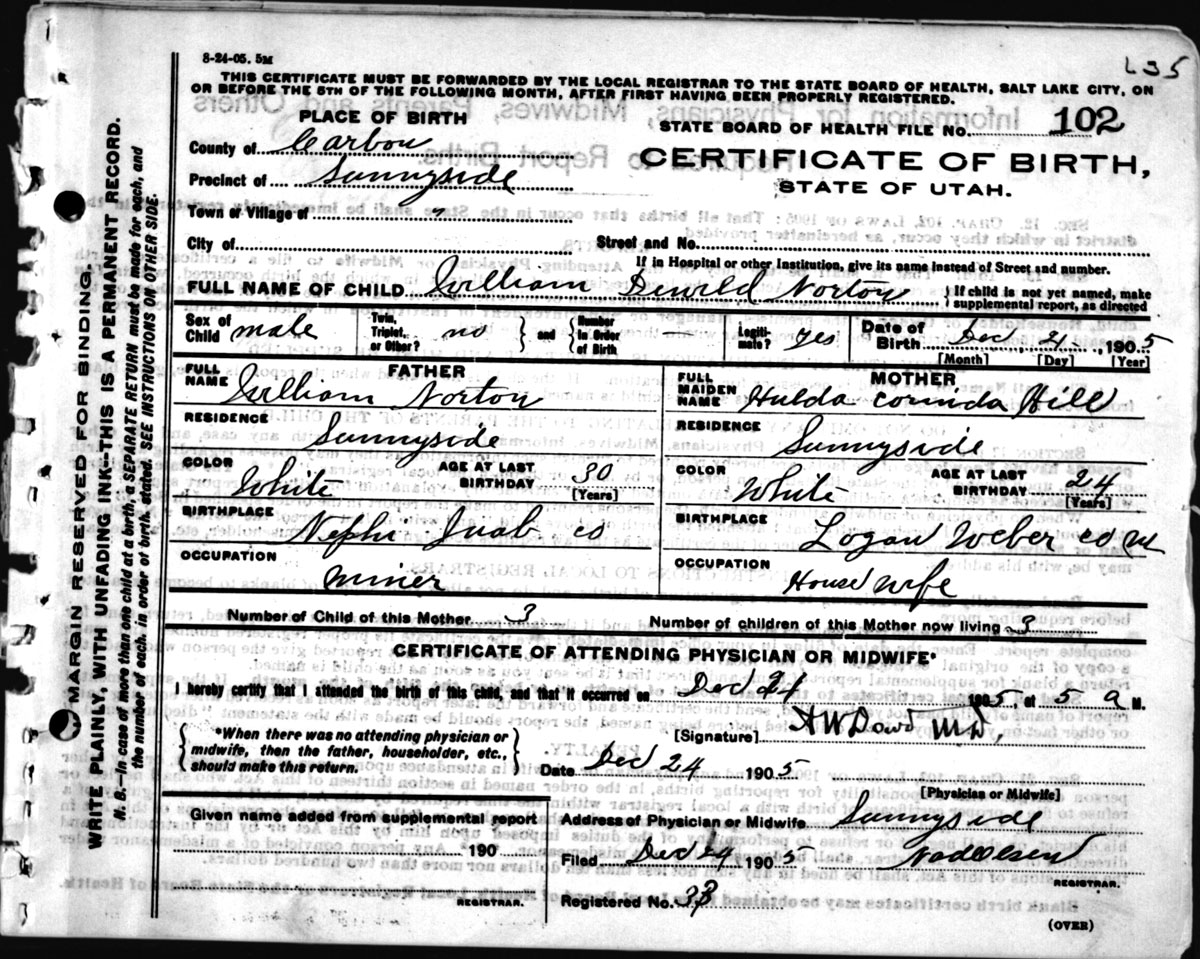 8-24-05. 5M
L35
THIS CERTIFICATE MUST BE FORWARDED BY THE LOCAL REGISTRAR TO THE STATE BOARD OF HEALTH, SALT LAKE CITY, ON
OR BEFORE THE 5TH OF THE FOLLOWING MONTH, AFTER FIRST HAVING BEEN PROPERLY REGISTERED.
PLACE OF BIRTH
STATE BOARD OF HEALTH FILE No. 102
County of Carbon
CERTIFICATE OF BIRTH,
Precinct of Sunnyside
STATE OF UTAH.
Town or Village of "
City of
Street and No.
If in Hospital or other Institution, give its name instead of Street and number.
FULL NAME OF CHILD William Dewild Norton } If child is not yet named, make supplemental report, as directed
Sex of Child male Twin, Triplet, or Other? no } and { Number In Order of Birth — Legitimate? yes Date of Birth Dec 24, 1905
[Month] [Day] [Year]
FATHER
MOTHER
FULL NAME William Norton
FULL MAIDEN NAME Hulda Corinda Hill
RESIDENCE Sunnyside
RESIDENCE Sunnyside
COLOR White AGE AT LAST BIRTHDAY 30 [Years]
COLOR White AGE AT LAST BIRTHDAY 24 [Years]
BIRTHPLACE Nephi Juab co
BIRTHPLACE Logan Weber co ut
OCCUPATION miner
OCCUPATION House wife
Number of Child of this Mother 3
Number of children of this Mother now living 3
CERTIFICATE OF ATTENDING PHYSICIAN OR MIDWIFE*
I hereby certify that I attended the birth of this child, and that it occurred on Dec 24 1905, at 5 a M.
{ *When there was no attending physician or midwife, then the father, householder, etc., should make this return. }
[Signature] A W Dowd M.D,
Date Dec 24 1905
[Physician or Midwife]
Given name added from supplemental report
190
REGISTRAR.
Address of Physician or Midwife Sunnyside
Filed Dec 24 1905
REGISTRAR.
Registered No. 33
(OVER)
MARGIN RESERVED FOR BINDING.
WRITE PLAINLY, WITH UNFADING INK--THIS IS A PERMANENT RECORD.
N. B.--In case of more than one child at a birth, a SEPARATE RETURN must be made for each, and
the number of each, in order of birth, stated. SEE INSTRUCTIONS ON OTHER SIDE.